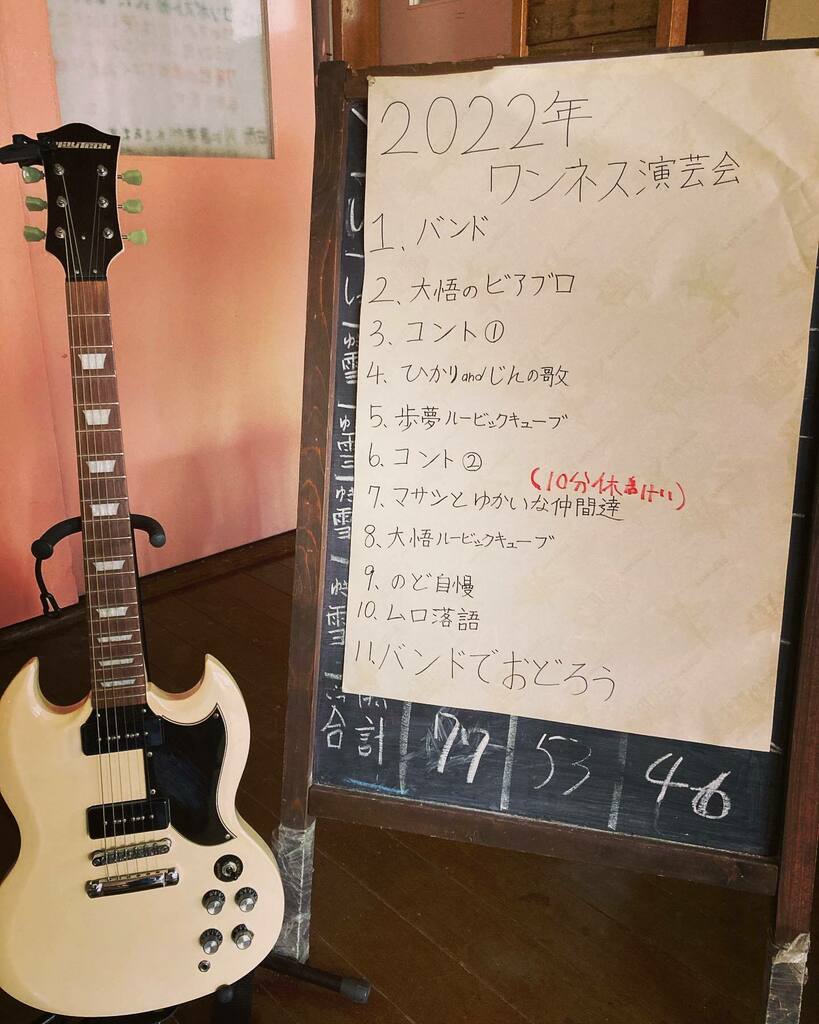 2022年
ワンネス演芸会
1、バンド
2、大悟のビアブロ
3、コント①
4、ひかりandじんの歌
5、歩夢ルービックキューブ
6、コント②
(10分休憩けい)
7、マサシとゆかいな仲間達
8、大悟ルービックキューブ
9、のど自慢
10、ムロ落語
11、バンドでおどろう
合計
77
53
46